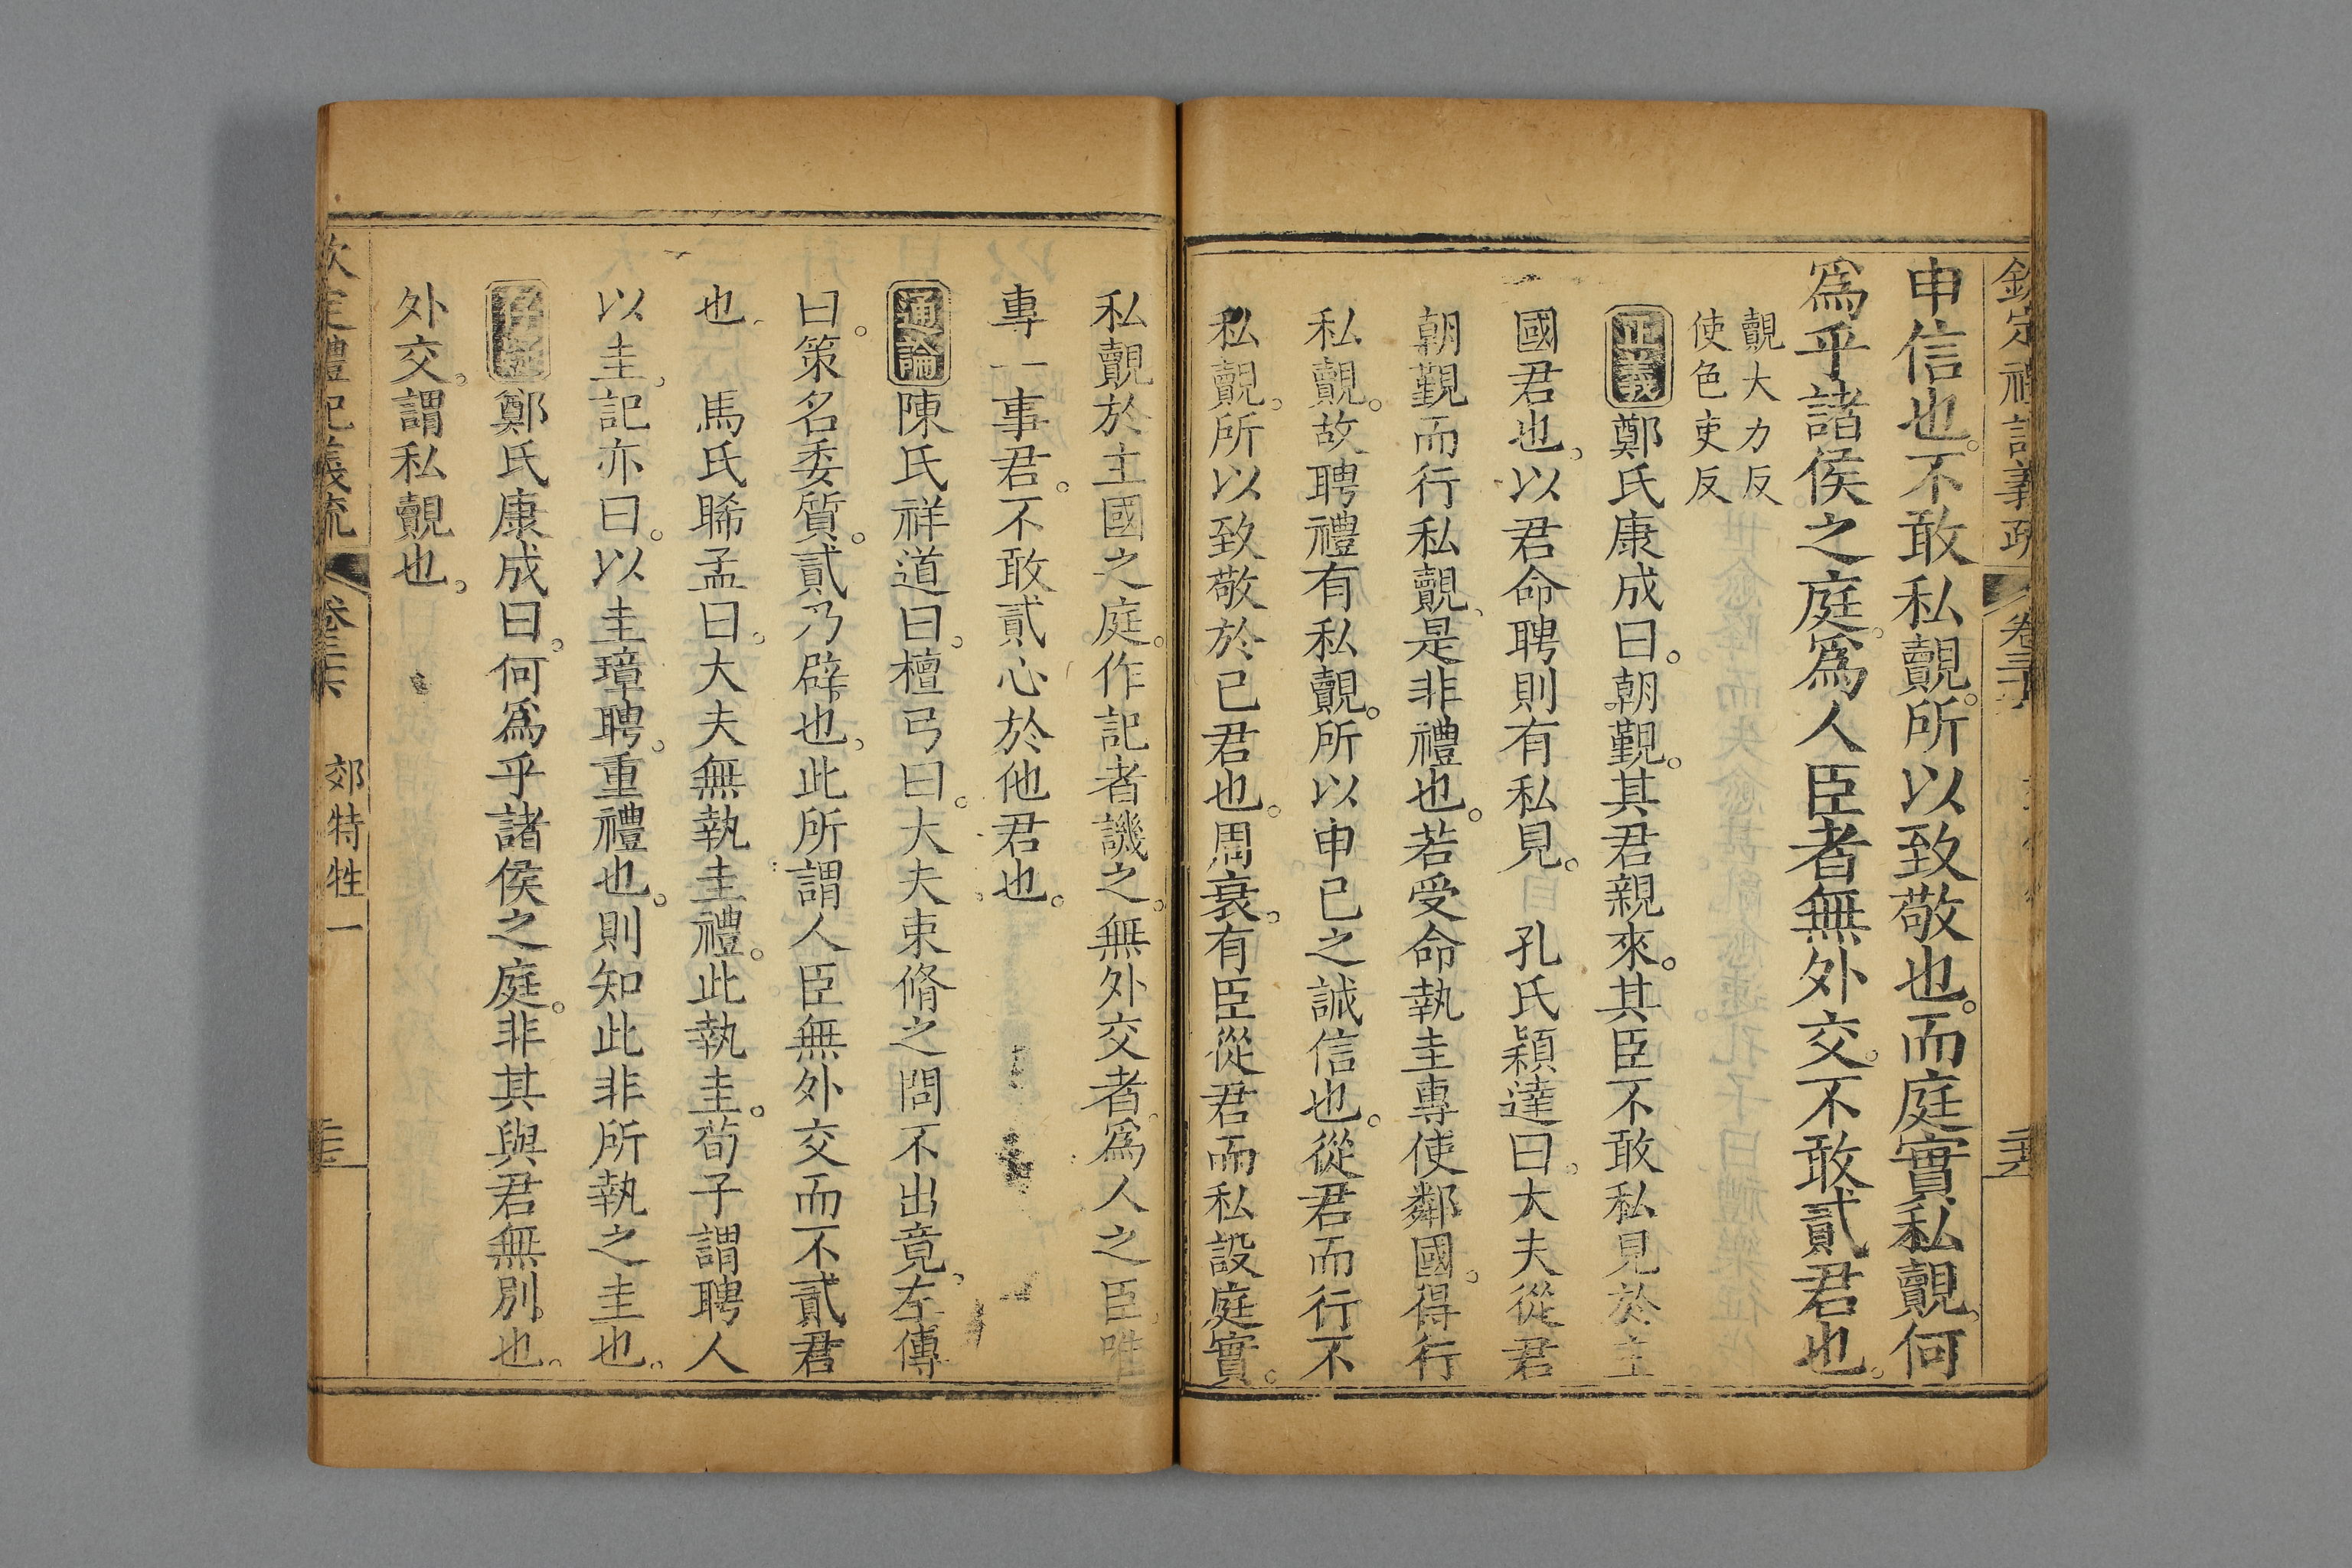 欽定禮記義疏 卷三十
申信也。不敢私覿。所以致敬也。而庭實私覿。何
爲乎諸侯之庭。爲人臣者無外交。不敢貳君也。
覿大力反
使色吏反
正義 鄭氏康成曰。朝覲。其君親來。其臣不敢私見於主
國君也。以君命聘則有私見。 孔氏穎達曰。大夫從君
朝覲而行私覿、是非禮也。若受命執圭專使鄰國。得行
私覿。故聘禮有私覿。所以申已之誠信也。從君而行不
私覿。所以致敬於已君也。周衰。有臣從君而私設庭實。
私覿於主國之庭。作記者譏之。無外交者。爲人之臣。唯
專一事君。不敢貳心於他君也。
通論 陳氏祥道曰。檀弓曰。大夫束脩之問不出竟。左傳
曰。策名委質。貳乃辟也。此所謂人臣無外交而不貳君
也。 馬氏睎孟曰。大夫無執圭禮。此執圭。荀子謂聘人
以圭。記亦曰。以圭璋聘。重禮也。則知此非所執之圭也。
存疑 鄭氏康成曰。何爲乎諸侯之庭。非其與君無別也。
外交。謂私覿也。
欽定禮記義疏 卷三十六 郊特牲一